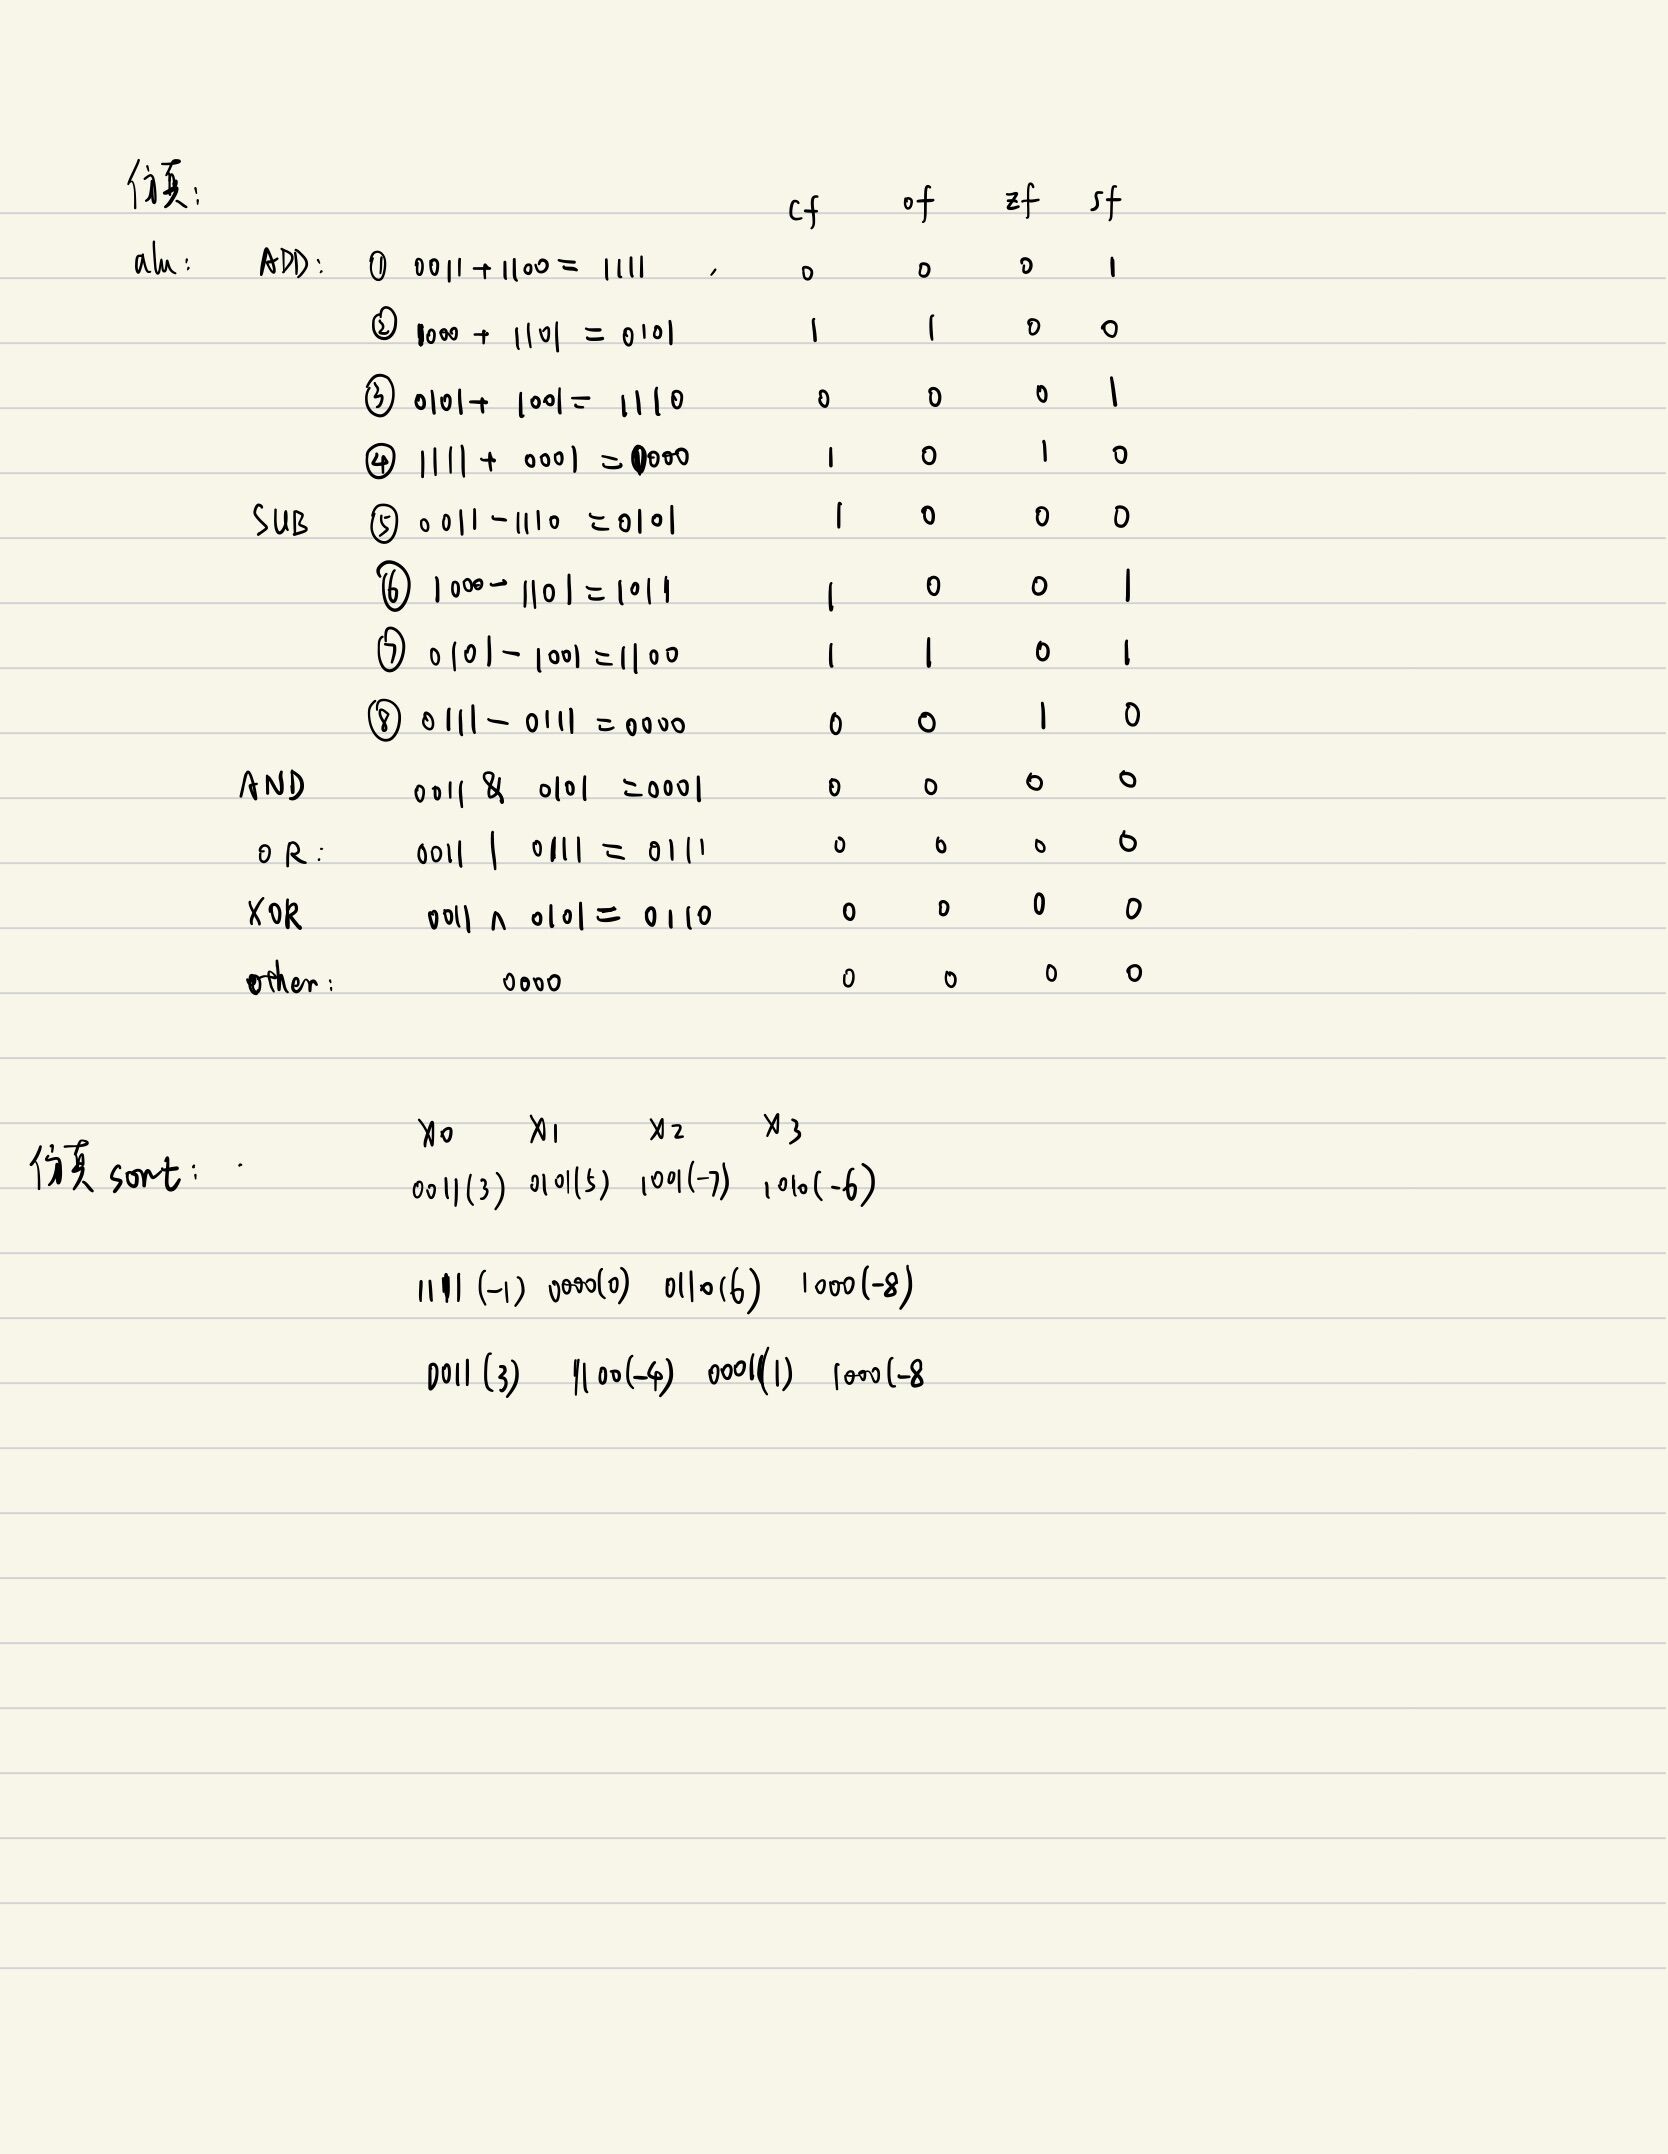 仿真:
cf of zf sf
alu: ADD: ① 0011 + 1100 = 1111 0 0 0 1
② 1000 + 1101 = 0101 1 1 0 0
③ 0101 + 1001 = 1110 0 0 0 1
④ 1111 + 0001 = 0000 1 0 1 0
SUB ⑤ 0011 - 1110 = 0101 1 0 0 0
⑥ 1000 - 1101 = 1011 1 0 0 1
⑦ 0101 - 1001 = 1100 1 1 0 1
⑧ 0111 - 0111 = 0000 0 0 1 0
AND 0011 & 0101 = 0001 0 0 0 0
OR: 0011 | 0111 = 0111 0 0 0 0
XOR 0011 ^ 0101 = 0110 0 0 0 0
other: 0000 0 0 0 0
x0 x1 x2 x3
仿真 sort: 0011(3) 0101(5) 1001(-7) 1010(-6)
1111(-1) 0000(0) 0110(6) 1000(-8)
0011(3) 1100(-4) 0001(1) 1000(-8